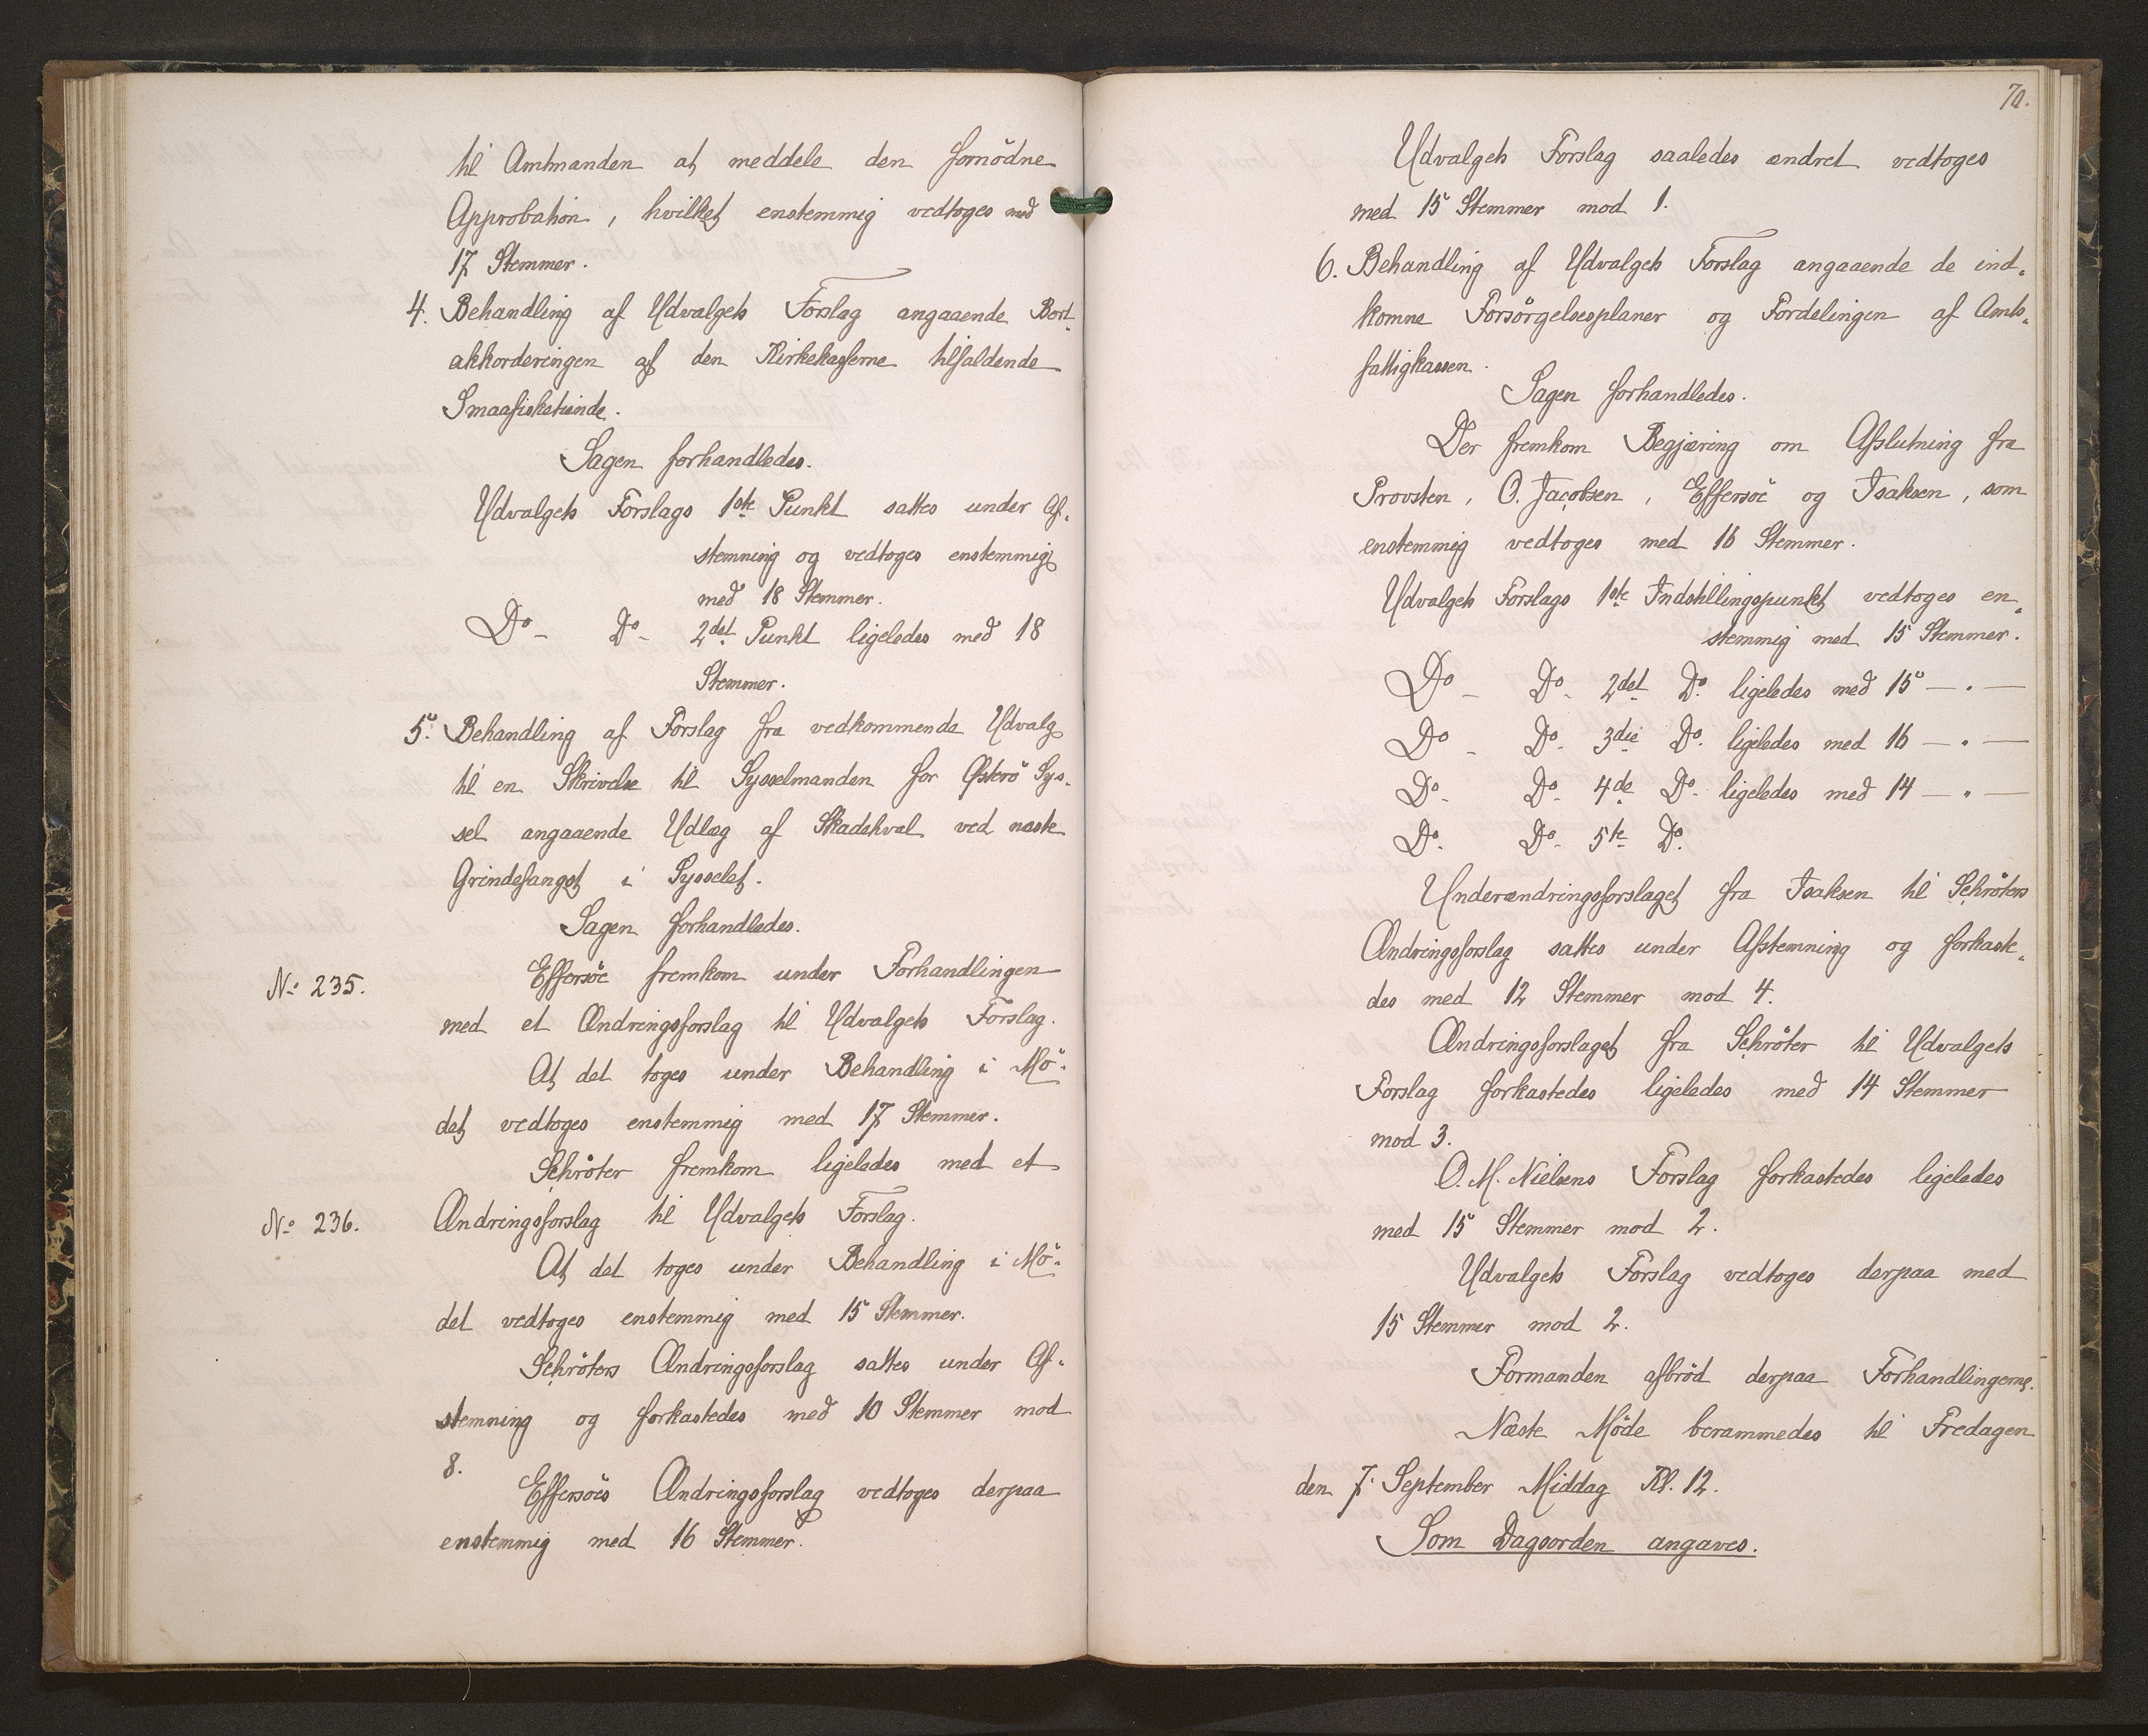 til Amtmanden at meddele den fornödne
Approbation, hvilket enstemmig vedtoges med
17 Stemmer.
4. Behandling af Udvalgets Forslag angaaende Bort-
akkorderingen af den Kirkekasserne tilfaldende
Smaafisketiende.
Sagen forhandledes.
Udvalgets Forslags 1ste Punkt sattes under Af-
stemning og vedtoges enstemmig
med 18 Stemmer.
Do- Do- 2det Punkt ligeledes med 18
Stemmer.
5. Behandling af Forslag fra vedkommende Udvalg
til en Skrivelse til Sysselmanden for Österö Sys-
sel angaaende Udlæg af Skadehval ved næste
Grindefangst i Sysselet.
Sagen forhandledes.
No 235. Effersöe fremkom under Forhandlingen
med et Ændringsforslag til Udvalgets Forslag.
At det toges under Behandling i Mö-
det vedtoges enstemmig med 17 Stemmer.
Schröter fremkom ligeledes med et
No 236. Ændringsforslag til Udvalgets Forslag.
At det toges under Behandling i Mö-
det vedtoges enstemmig med 15 Stemmer.
Schröters Ændringsforslag sattes under Af-
stemning og forkastedes med 10 Stemmer mod
8.
Effersöes Ændringsforslag vedtoges derpaa
enstemmig med 16 Stemmer.
70.
Udvalgets Forslag saaledes ændret vedtoges
med 15 Stemmer mod 1.
6. Behandling af Udvalgets Forslag angaaende de ind-
komne Forsörgelsesplaner og Fordelingen af Amts-
fattigkassen.
Sagen forhandledes.
Der fremkom Begjæring om Afslutning fra
Provsten, O. Jacobsen, Effersöe og Isaksen, som
enstemmig vedtoges med 16 Stemmer.
Udvalgets Forslags 1ste Indstillingspunkt vedtoges en-
stemmig med 15 Stemmer.
Do - Do- 2det Do. ligeledes med 15 — . —
Do - Do- 3die Do. ligeledes med 16 — . —
Do- Do- 4de Do- ligeledes med 14 — . —
Do- Do- 5te Do.
Underændringsforslaget fra Isaksen til Schröters
Ændringsforslag sattes under Afstemning og forkaste-
des med 12 Stemmer mod 4.
Ændringsforslaget fra Schröter til Udvalgets
Forslag forkastedes ligeledes med 14 Stemmer
mod 3.
O. M. Nielsens Forslag forkastedes ligeledes
med 15 Stemmer mod 2.
Udvalgets Forslag vedtoges derpaa med
15 Stemmer mod 2.
Formanden afbröd derpaa Forhandlingerne.
Næste Möde berammedes til Fredagen
den 7. September Middag Kl. 12.
Som Dagsorden angaves.